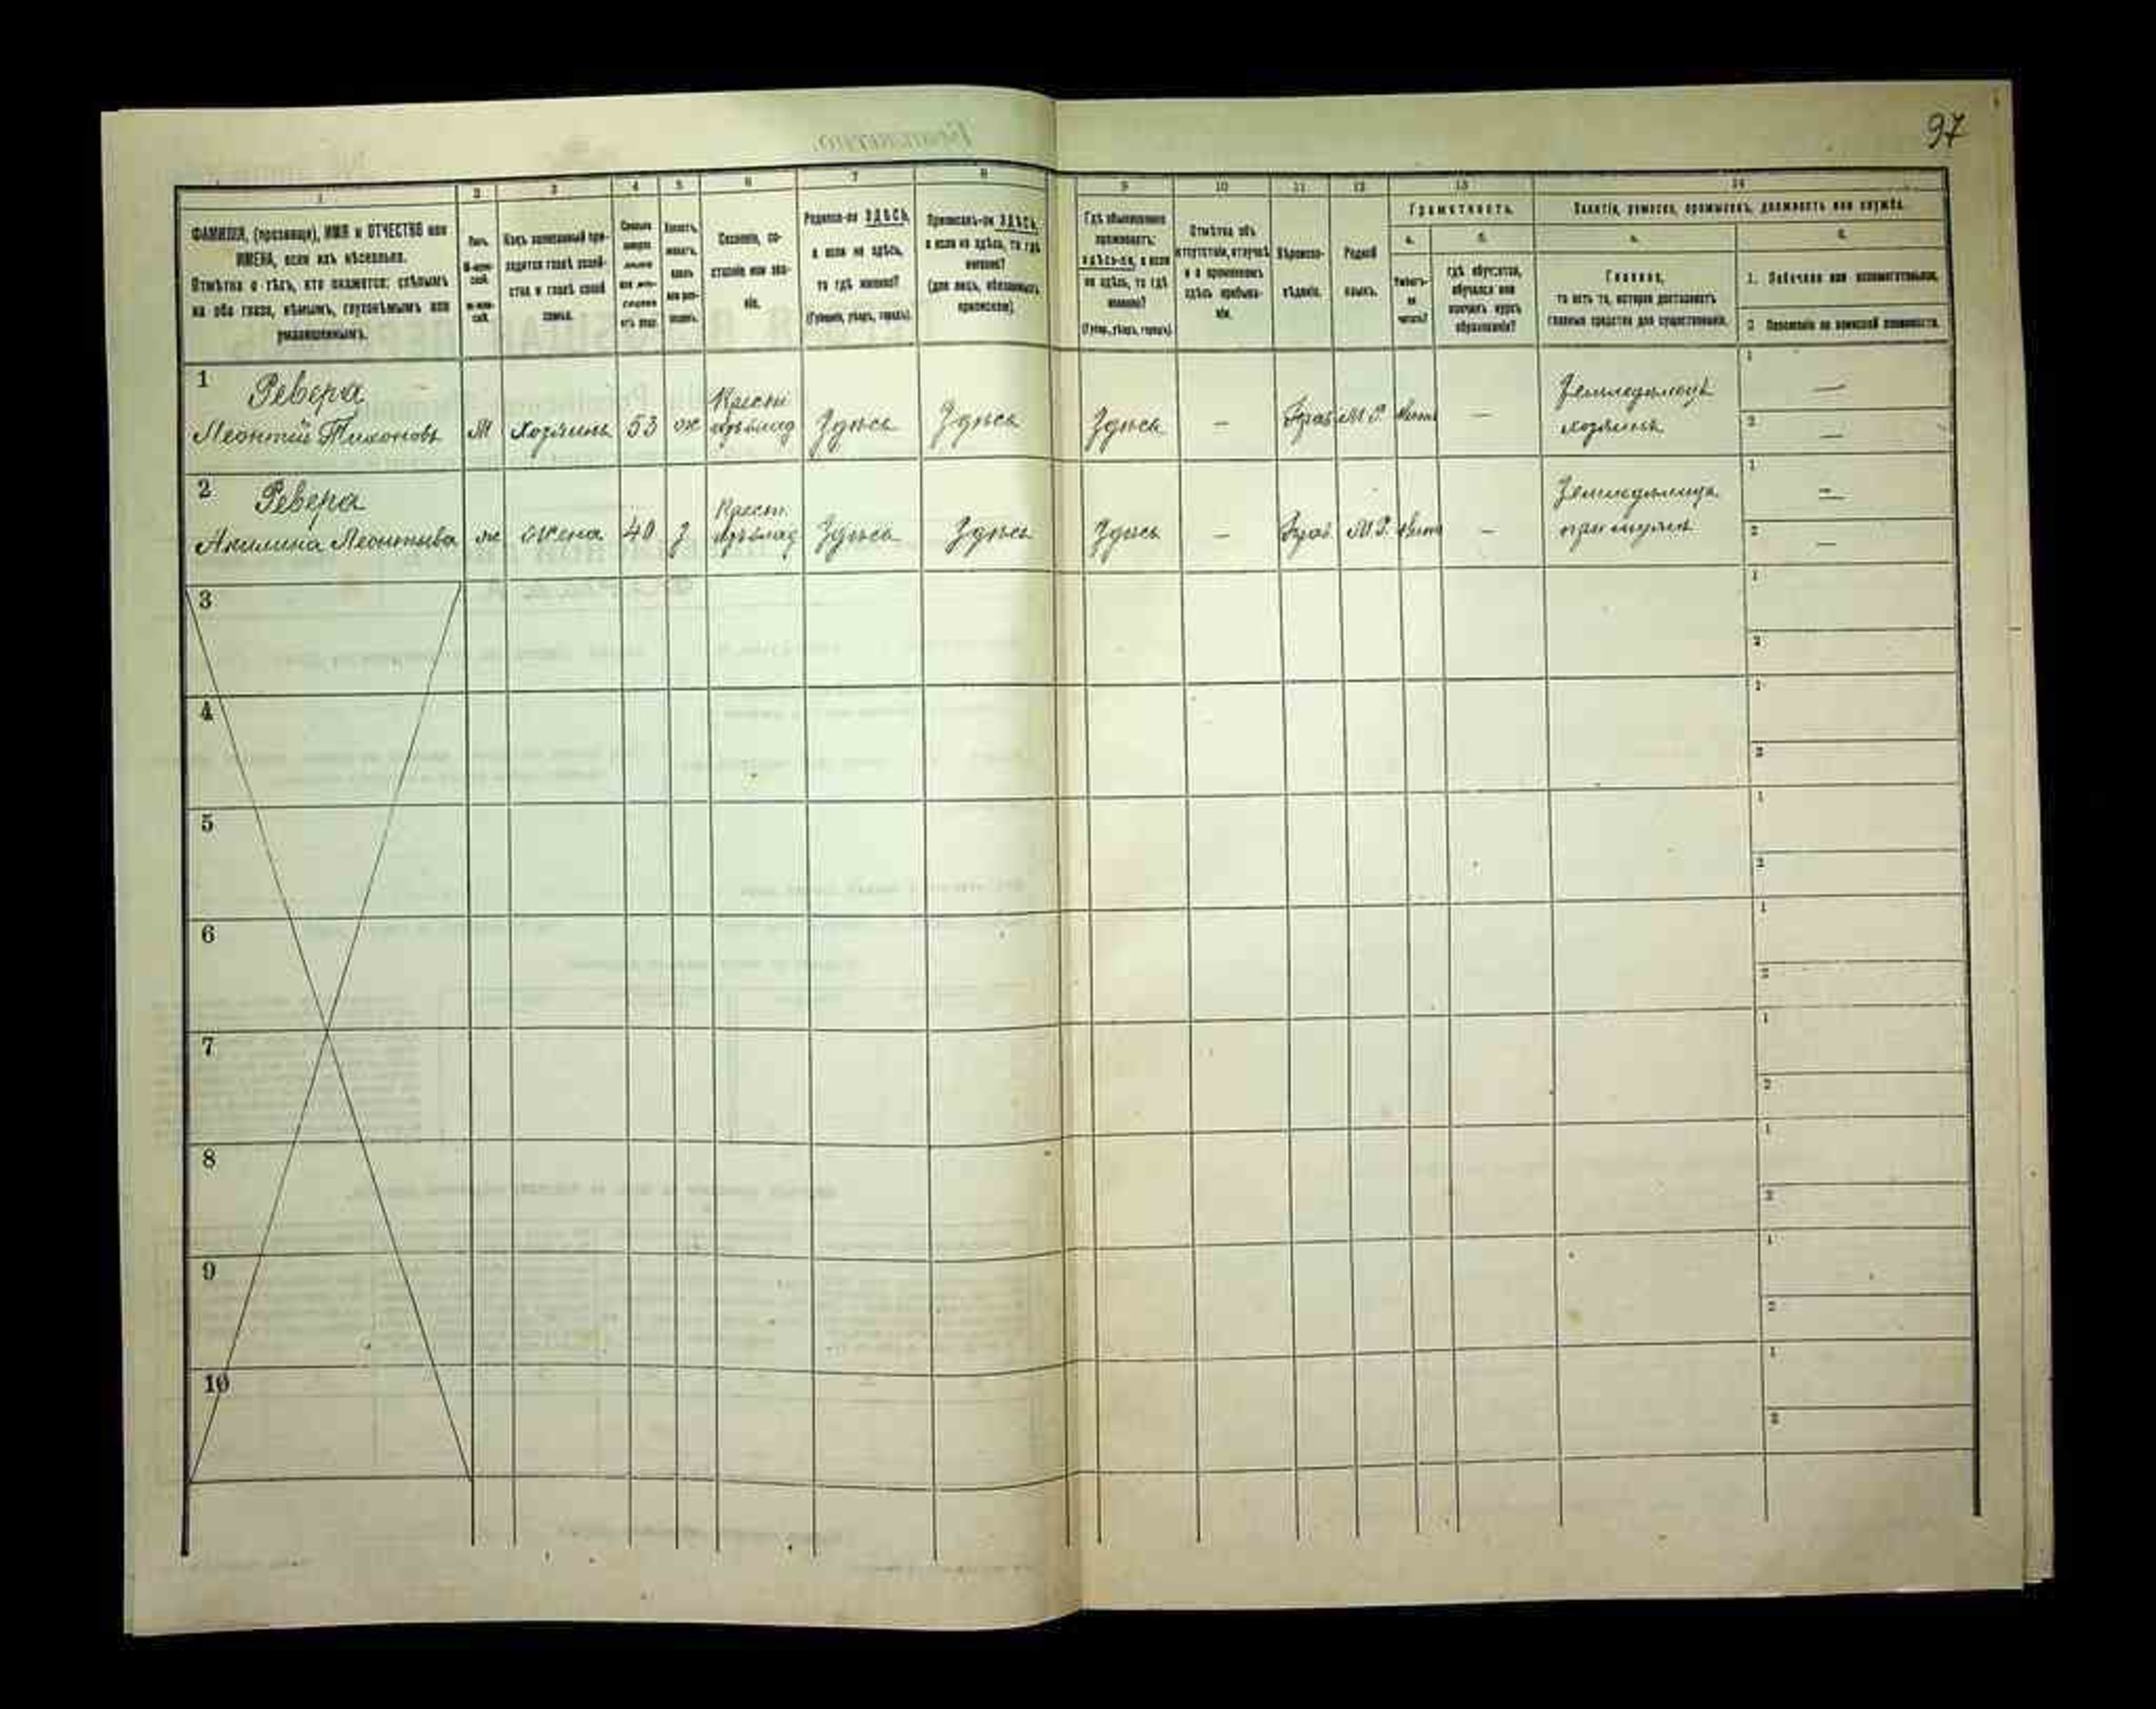 97
1 2 3 4 5 6 7 8 9 10 11 12 13 14
ФАМИЛІЯ, (прозвище), ИМЯ и ОТЧЕСТВО или
ИМЕНА, если ихъ нѣсколько.
Отмѣтка о тѣхъ, кто окажется: слѣпымъ
на оба глаза, нѣмымъ, глухонѣмымъ или
умалишеннымъ.
Полъ.
Какъ записанный при-
ходится главѣ хозяй-
ства и главѣ своей
семьи.
Холостъ,
женатъ,
вдовъ
или раз-
веденъ.
Сословіе, со-
стояніе или зва-
ніе.
Родился-ли ЗДѢСЬ,
а если не здѣсь,
то гдѣ именно?
(Губернія, уѣздъ, городъ).
Приписанъ-ли ЗДѢСЬ,
а если не здѣсь, то гдѣ
именно?
(для лицъ, обязанныхъ
припискою).
Гдѣ обыкновенно
проживаетъ:
здѣсь-ли, а если
не здѣсь, то гдѣ
именно?
(Губер., уѣздъ, городъ).
Отмѣтка объ
отсутствіи, отлучкѣ
и о временномъ
здѣсь пребыва-
ніи.
Вѣроиспо-
вѣданіе.
Родной
языкъ.
Грамотность.
а.
Умѣетъ-
ли
читать?
б.
гдѣ обучается,
обучался или
кончилъ курсъ
образованія?
Занятіе, ремесло, промыселъ, должность или служба.
а.
Главное,
то есть то, которое доставляетъ
главныя средства для существованія.
б.
1. Побочное или вспомогательное.
2. Положеніе по воинской повинности.
1 Ревера
Леонтій Тихоновъ М Хозяинъ 53 ж Крест. Здѣсь Здѣсь Здѣсь — Прав М. Р. — Земледѣлецъ хозяинъ 1 — 2 —
2 Ревера
Акилина Леонтьева ж жена 40 з Крест. Здѣсь Здѣсь Здѣсь — Прав. М. Р. — Земледѣлица при мужѣ 1 — 2 —
3 1 2
4 1 2
5 1 2
6 1 2
7 1 2
8 1 2
9 1 2
10 1 2